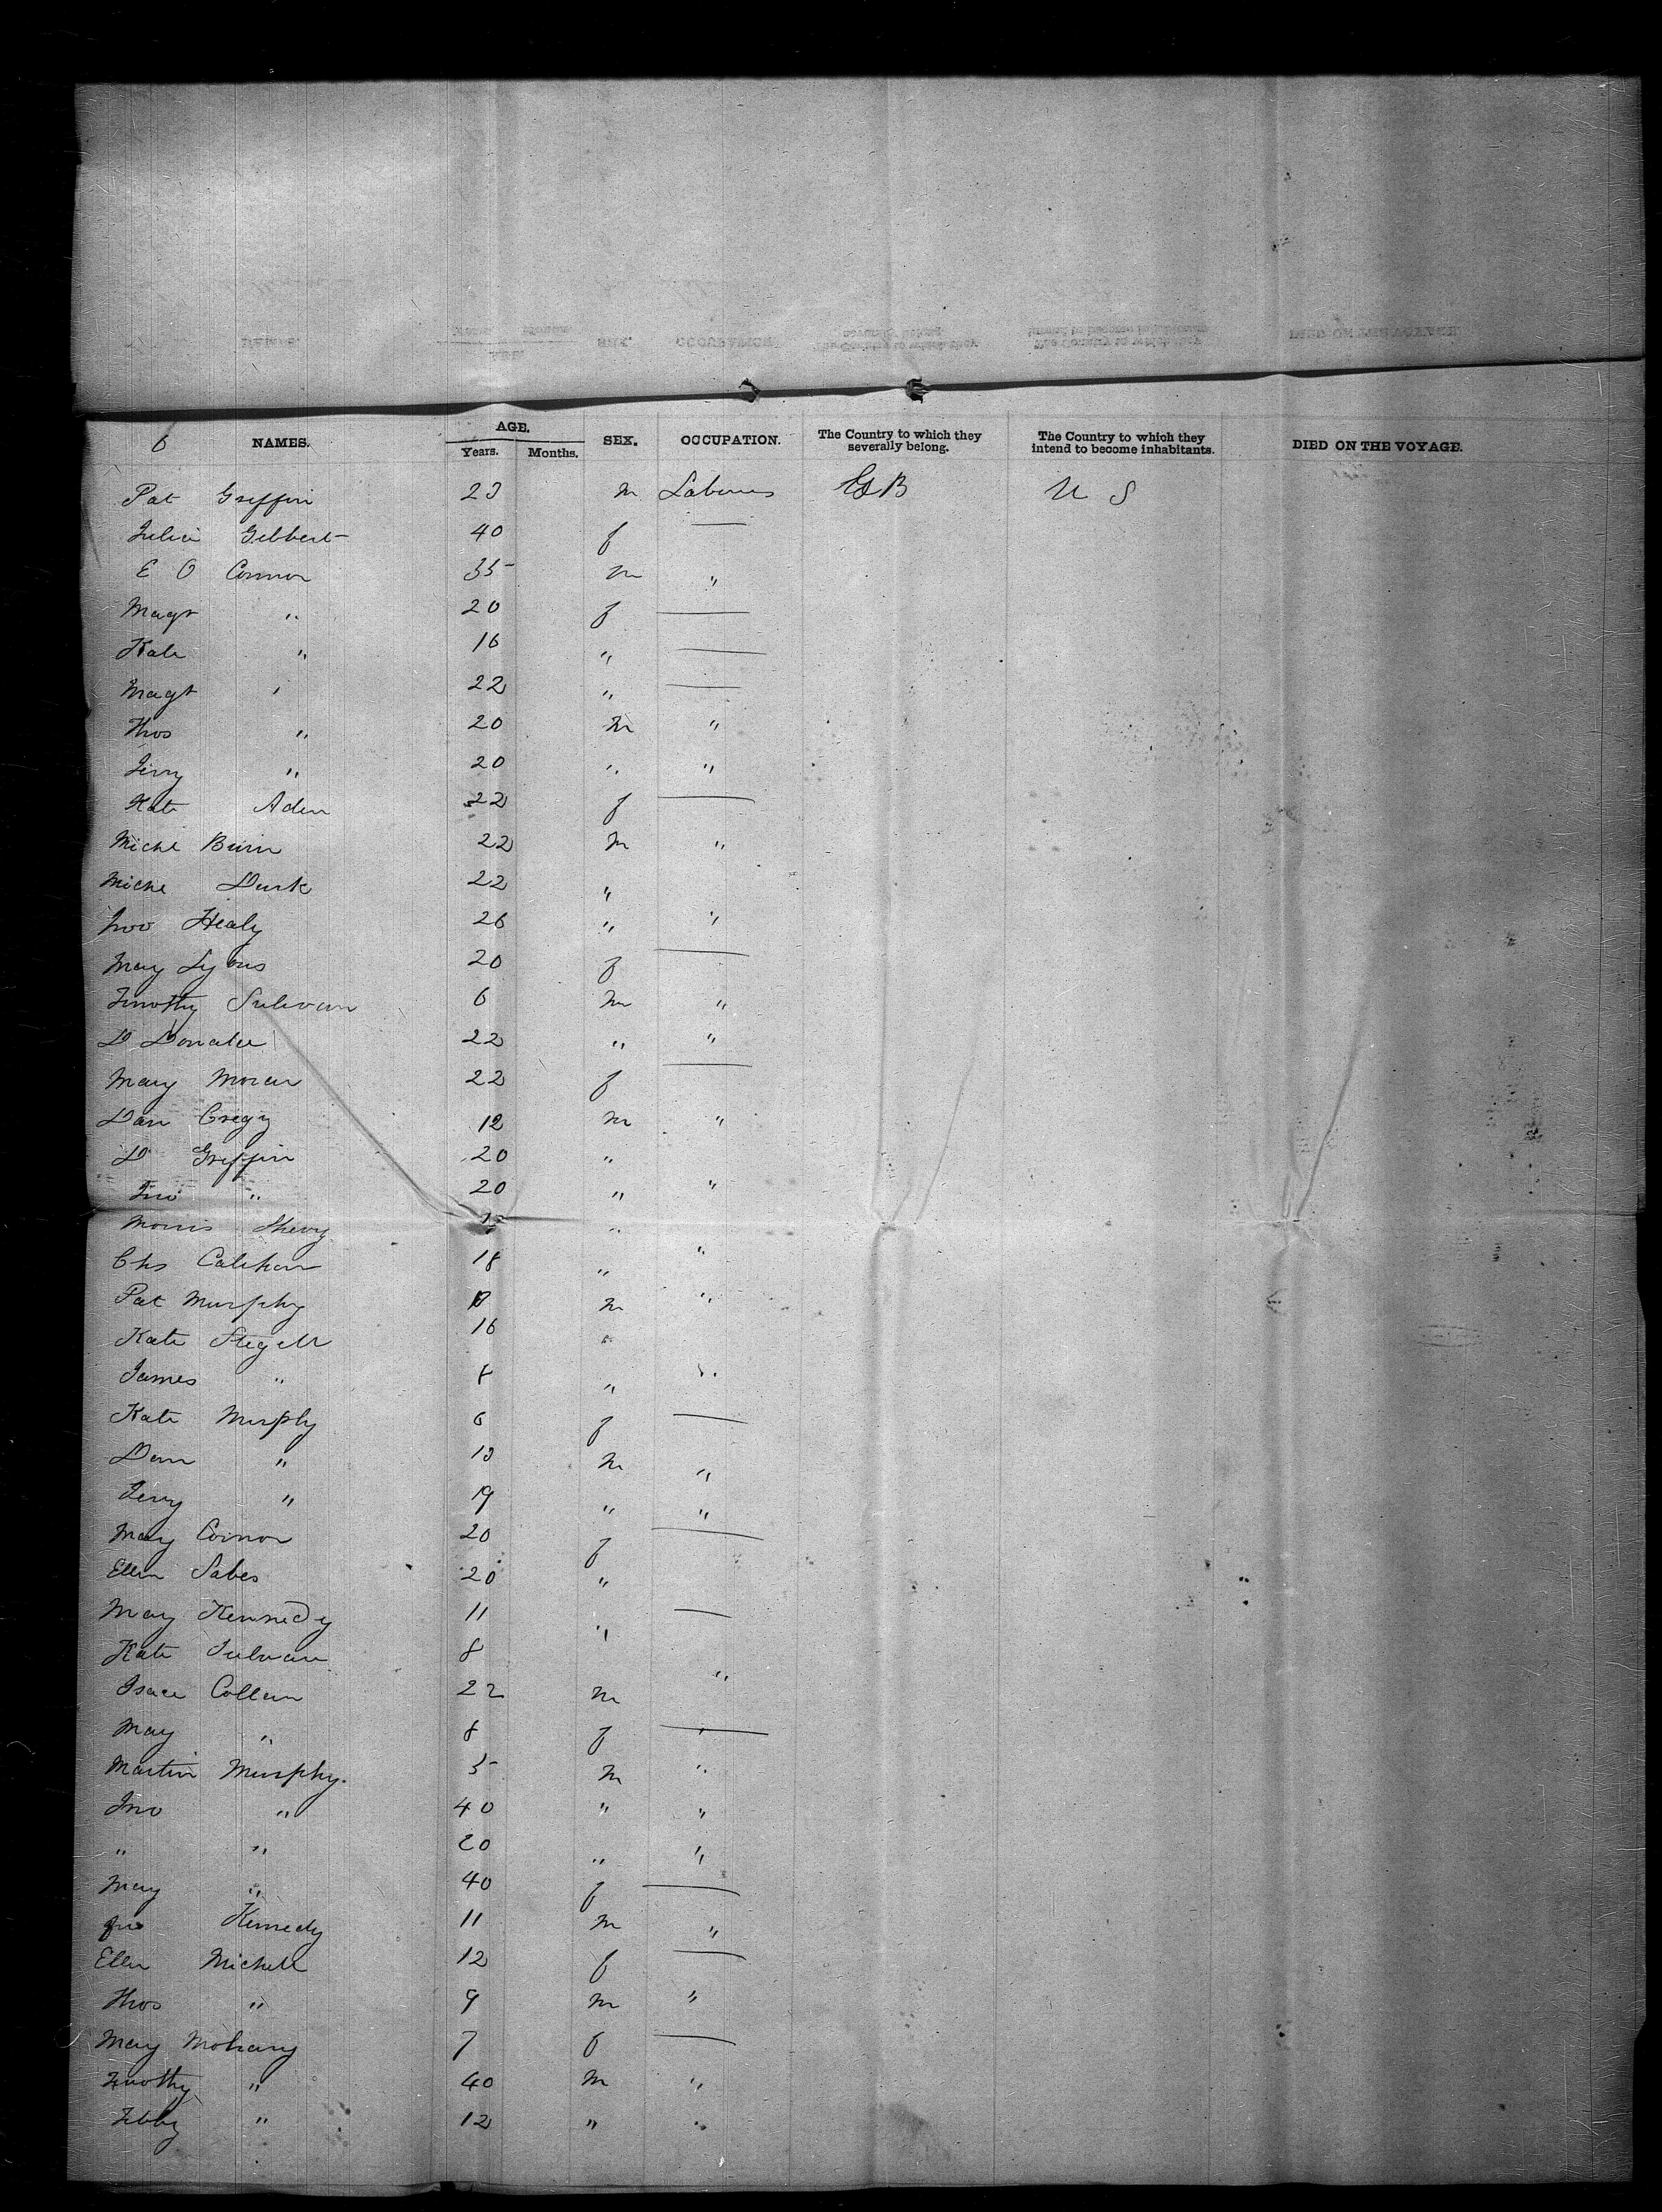 6 NAMES. AGE. Years. Months. SEX. OCCUPATION. The Country to which they severally belong. The Country to which they intend to become inhabitants. DIED ON THE VOYAGE.
Pat Griffin 23 m Laborers GB U S
Julia Gibbert 40 f —
E O Connor 35 m "
Magt " 20 f —
Kate " 16 " —
Magt " 22 " —
Thos " 20 m "
Jerry " 20 " "
Kate Aden 22 f —
Michl 22 m "
Miche Durk 22 "
Jno Healy 26 " "
May Lyons 20 f —
Timothy Sulivan 6 m "
D 22 " "
Mary Moran 22 f —
Dan Gregg 12 m "
D Griffin 20 "
Jno " 20 " "
Morris "
Chs Calihan 18 " "
Pat Murphy m "
Kate 16 "
James " 8 " "
Kate Murphy 6 f —
Dan " 13 m "
Jerry " 19 " "
May Connor 20 f —
Ellen Sabes 20 "
May Kennedy 11 " —
Kate Sulivan 8 "
Isaac Collan 22 m
May " 8 f —
Martin Murphy. 5 m "
Jno " 40 " "
" " 20 " "
May " 40 f —
Jno Kennedy 11 m "
Ellen Michell 12 f —
Thos " 9 m "
May Mohany 7 f —
Timothy " 40 m "
" 12 " "